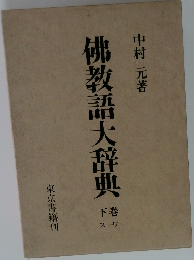 中村 元著
佛教語大辞典
下巻
東京書籍刊